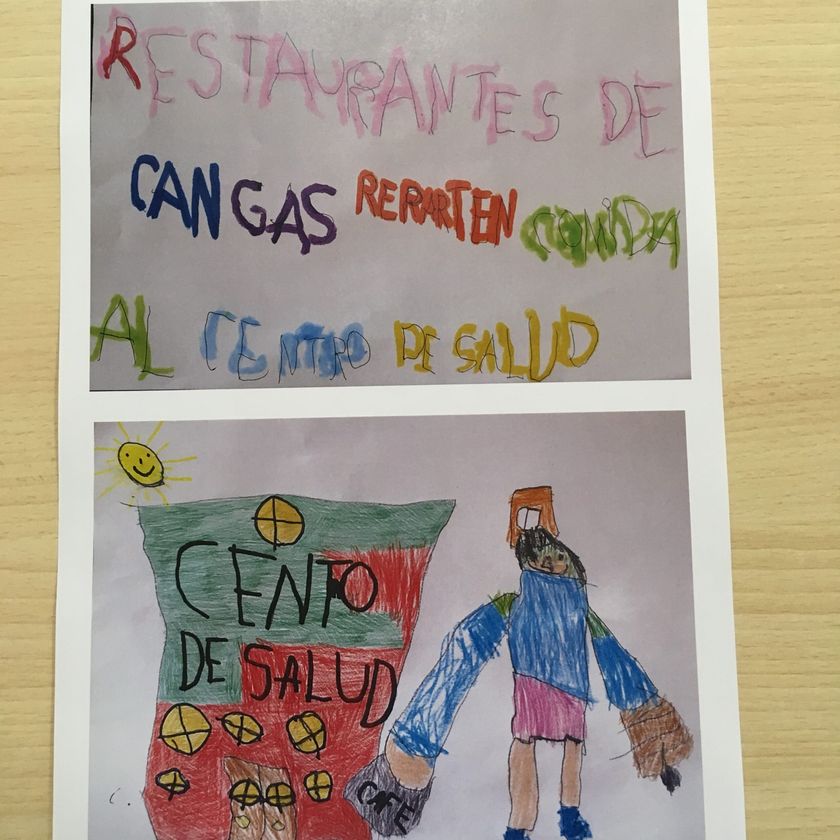 RESTAURANTES DE
CANGAS RERARTEN COMIDA
AL CENTRO DE SALUD
CENTO
DE SALUD
CAFE